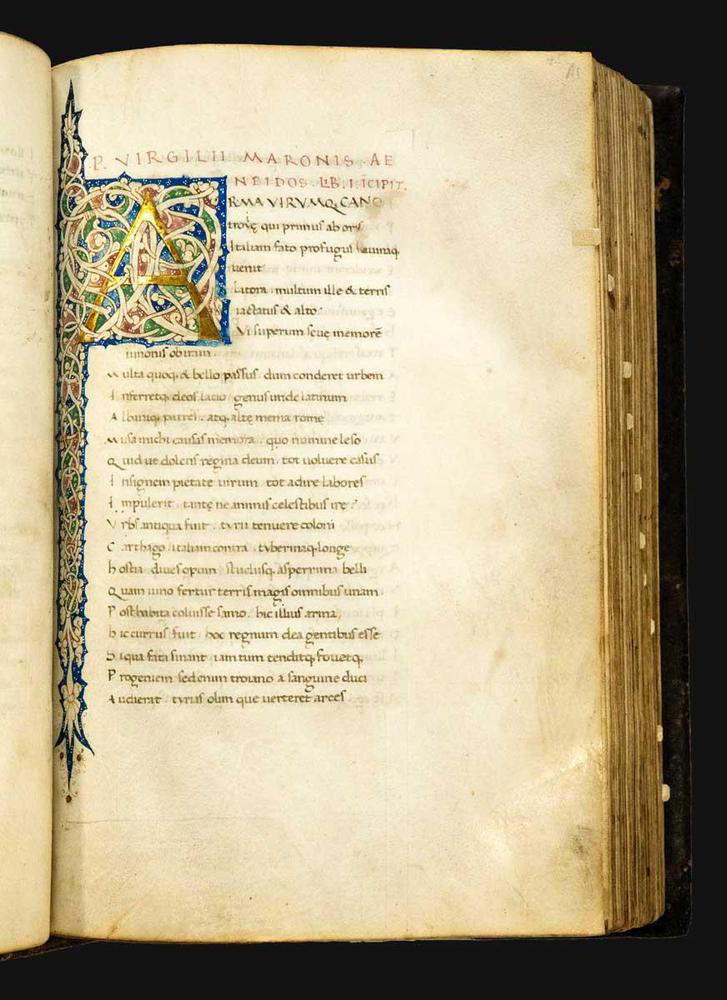 P. VIRGILII MARONIS AE
NEIDOS LIB. I. ICIPIT.
ARMA VIRVMQ CANO
troyę qui primus ab oris
Italiam fato profugus lauinaq
uenit
Litora. multum ille & terris
iactatus & alto.
Vi superum seuę memorē
iunonis ob iram.
Multa quoq & bello passus. dum conderet urbem
Inferretq deos lacio. genus unde latinum
Albaniq patres. atq altę menia rome
Musa michi causas memora. quo numine leso
Quid ue dolens regina deum. tot uoluere casus
Insignem pietate uirum. tot adire labores
Impulerit. tantę ne animis celestibus irę.
Vrbs antiqua fuit. tyrii tenuere coloni
Carthago. italiam contra. tyberinaq longe
hostia. diues opum. studiisq asperrima belli
Quam iuno fertur terris magis omnibus unam
Posthabita coluisse samo. hic illius arma
hic currus fuit. hoc regnum dea gentibus esse
Siqua fata sinant. iam tum tenditq fouetq
Progeniem sed enim troiano a sanguine duci
Audierat. tyrias olim que uerteret arces